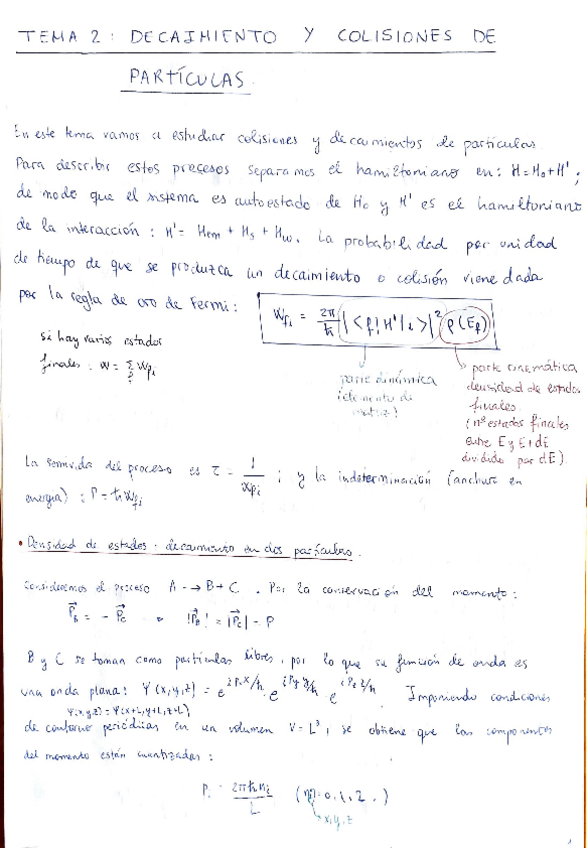 TEMA 2: DECAIMIENTO Y COLISIONES DE
PARTÍCULAS.
En este tema vamos a estudiar colisiones y decaimientos de partículas
Para describir estos procesos separamos el hamiltoniano en: H=H₀+H';
de modo que el sistema es autoestado de H₀ y H' es el hamiltoniano
de la interacción: H' = Hem + Hs + Hw. La probabilidad por unidad
de tiempo de que se produzca un decaimiento o colisión viene dada
por la regla de oro de Fermi: Wfi = 2π/ħ |<f|H'|i>|² ρ(Ef)
si hay varios estados
finales: W = Σ Wfi
f
parte dinámica
(elemento de
matriz)
parte cinemática
densidad de estados
finales
(nº estados finales
entre E y E+dE
dividido por dE).
La semivida del proceso es τ = 1/Wfi ; y la indeterminación (anchura en
energía): Γ = ħWfi
• Densidad de estados: decaimiento en dos partículas.
Consideremos el proceso A → B + C. Por la conservación del momento:
P⃗B = - P⃗C |P⃗B| = |P⃗C| = P
B y C se toman como partículas libres, por lo que su función de onda es
una onda plana: Ψ(x,y,z) = e^(iPx x/ħ) e^(iPy y/ħ) e^(iPz z/ħ). Imponiendo condiciones
Ψ(x,y,z)=Ψ(x+L,y+L,z+L)
de contorno periódicas en un volumen V = L³, se obtiene que las componentes
del momento están cuantizadas:
Pi = 2πħni/L (ni=0,1,2..)
x,y,z